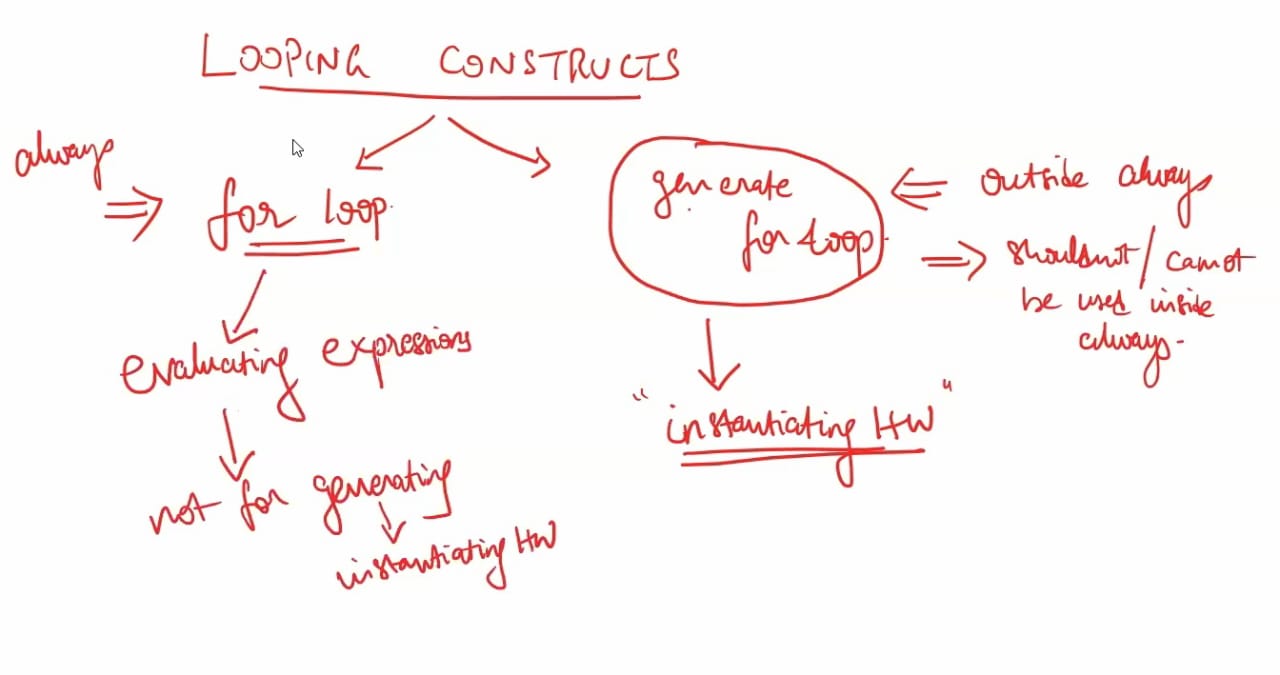 LOOPING CONSTRUCTS
always
for loop.
evaluating expressions
not for generating
instantiating HW
generate
for loop.
outside always
shouldnot/cannot
be used inside
always.
"instantiating HW"